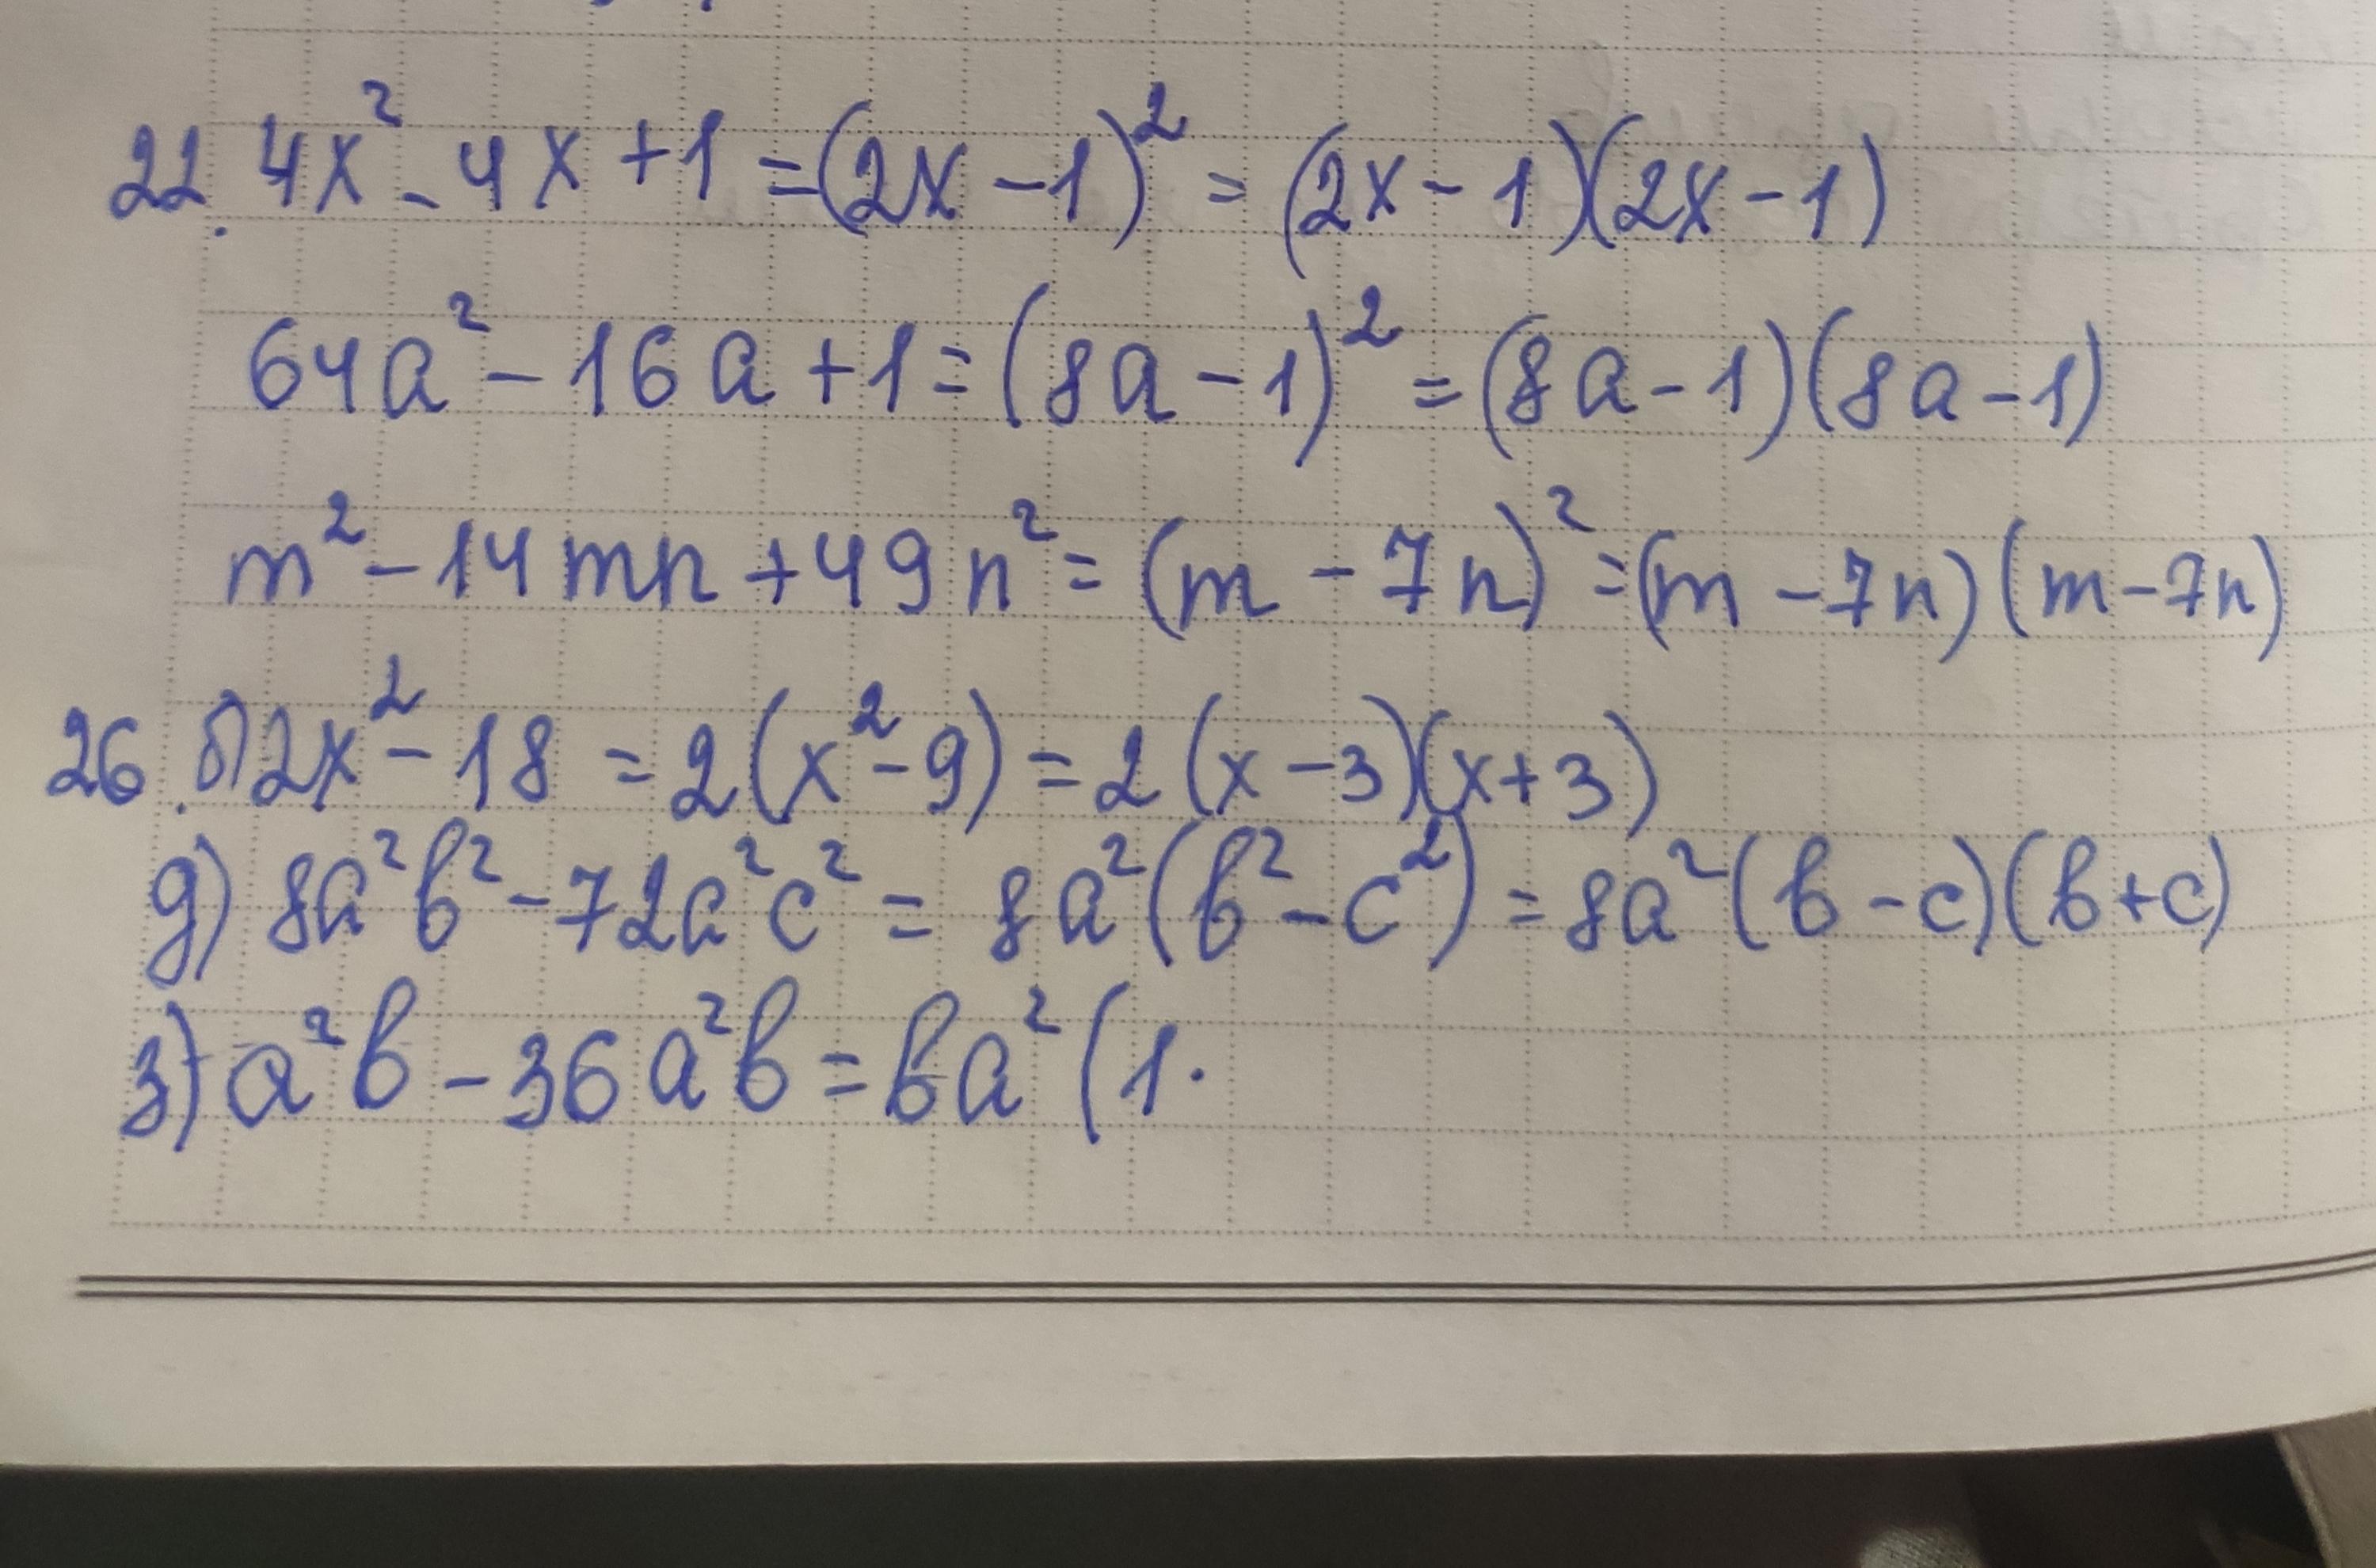 22. 4x² - 4x + 1 = (2x - 1)² = (2x - 1)(2x - 1)
64a² - 16a + 1 = (8a - 1)² = (8a - 1)(8a - 1)
m² - 14mn + 49n² = (m - 7n)² = (m - 7n)(m - 7n)
26. б) 2x² - 18 = 2(x² - 9) = 2(x - 3)(x + 3)
д) 8a²b² - 72a²c² = 8a²(b² - c²) = 8a²(b - c)(b + c)
з) a²b - 36a²b = ba²(1 ·